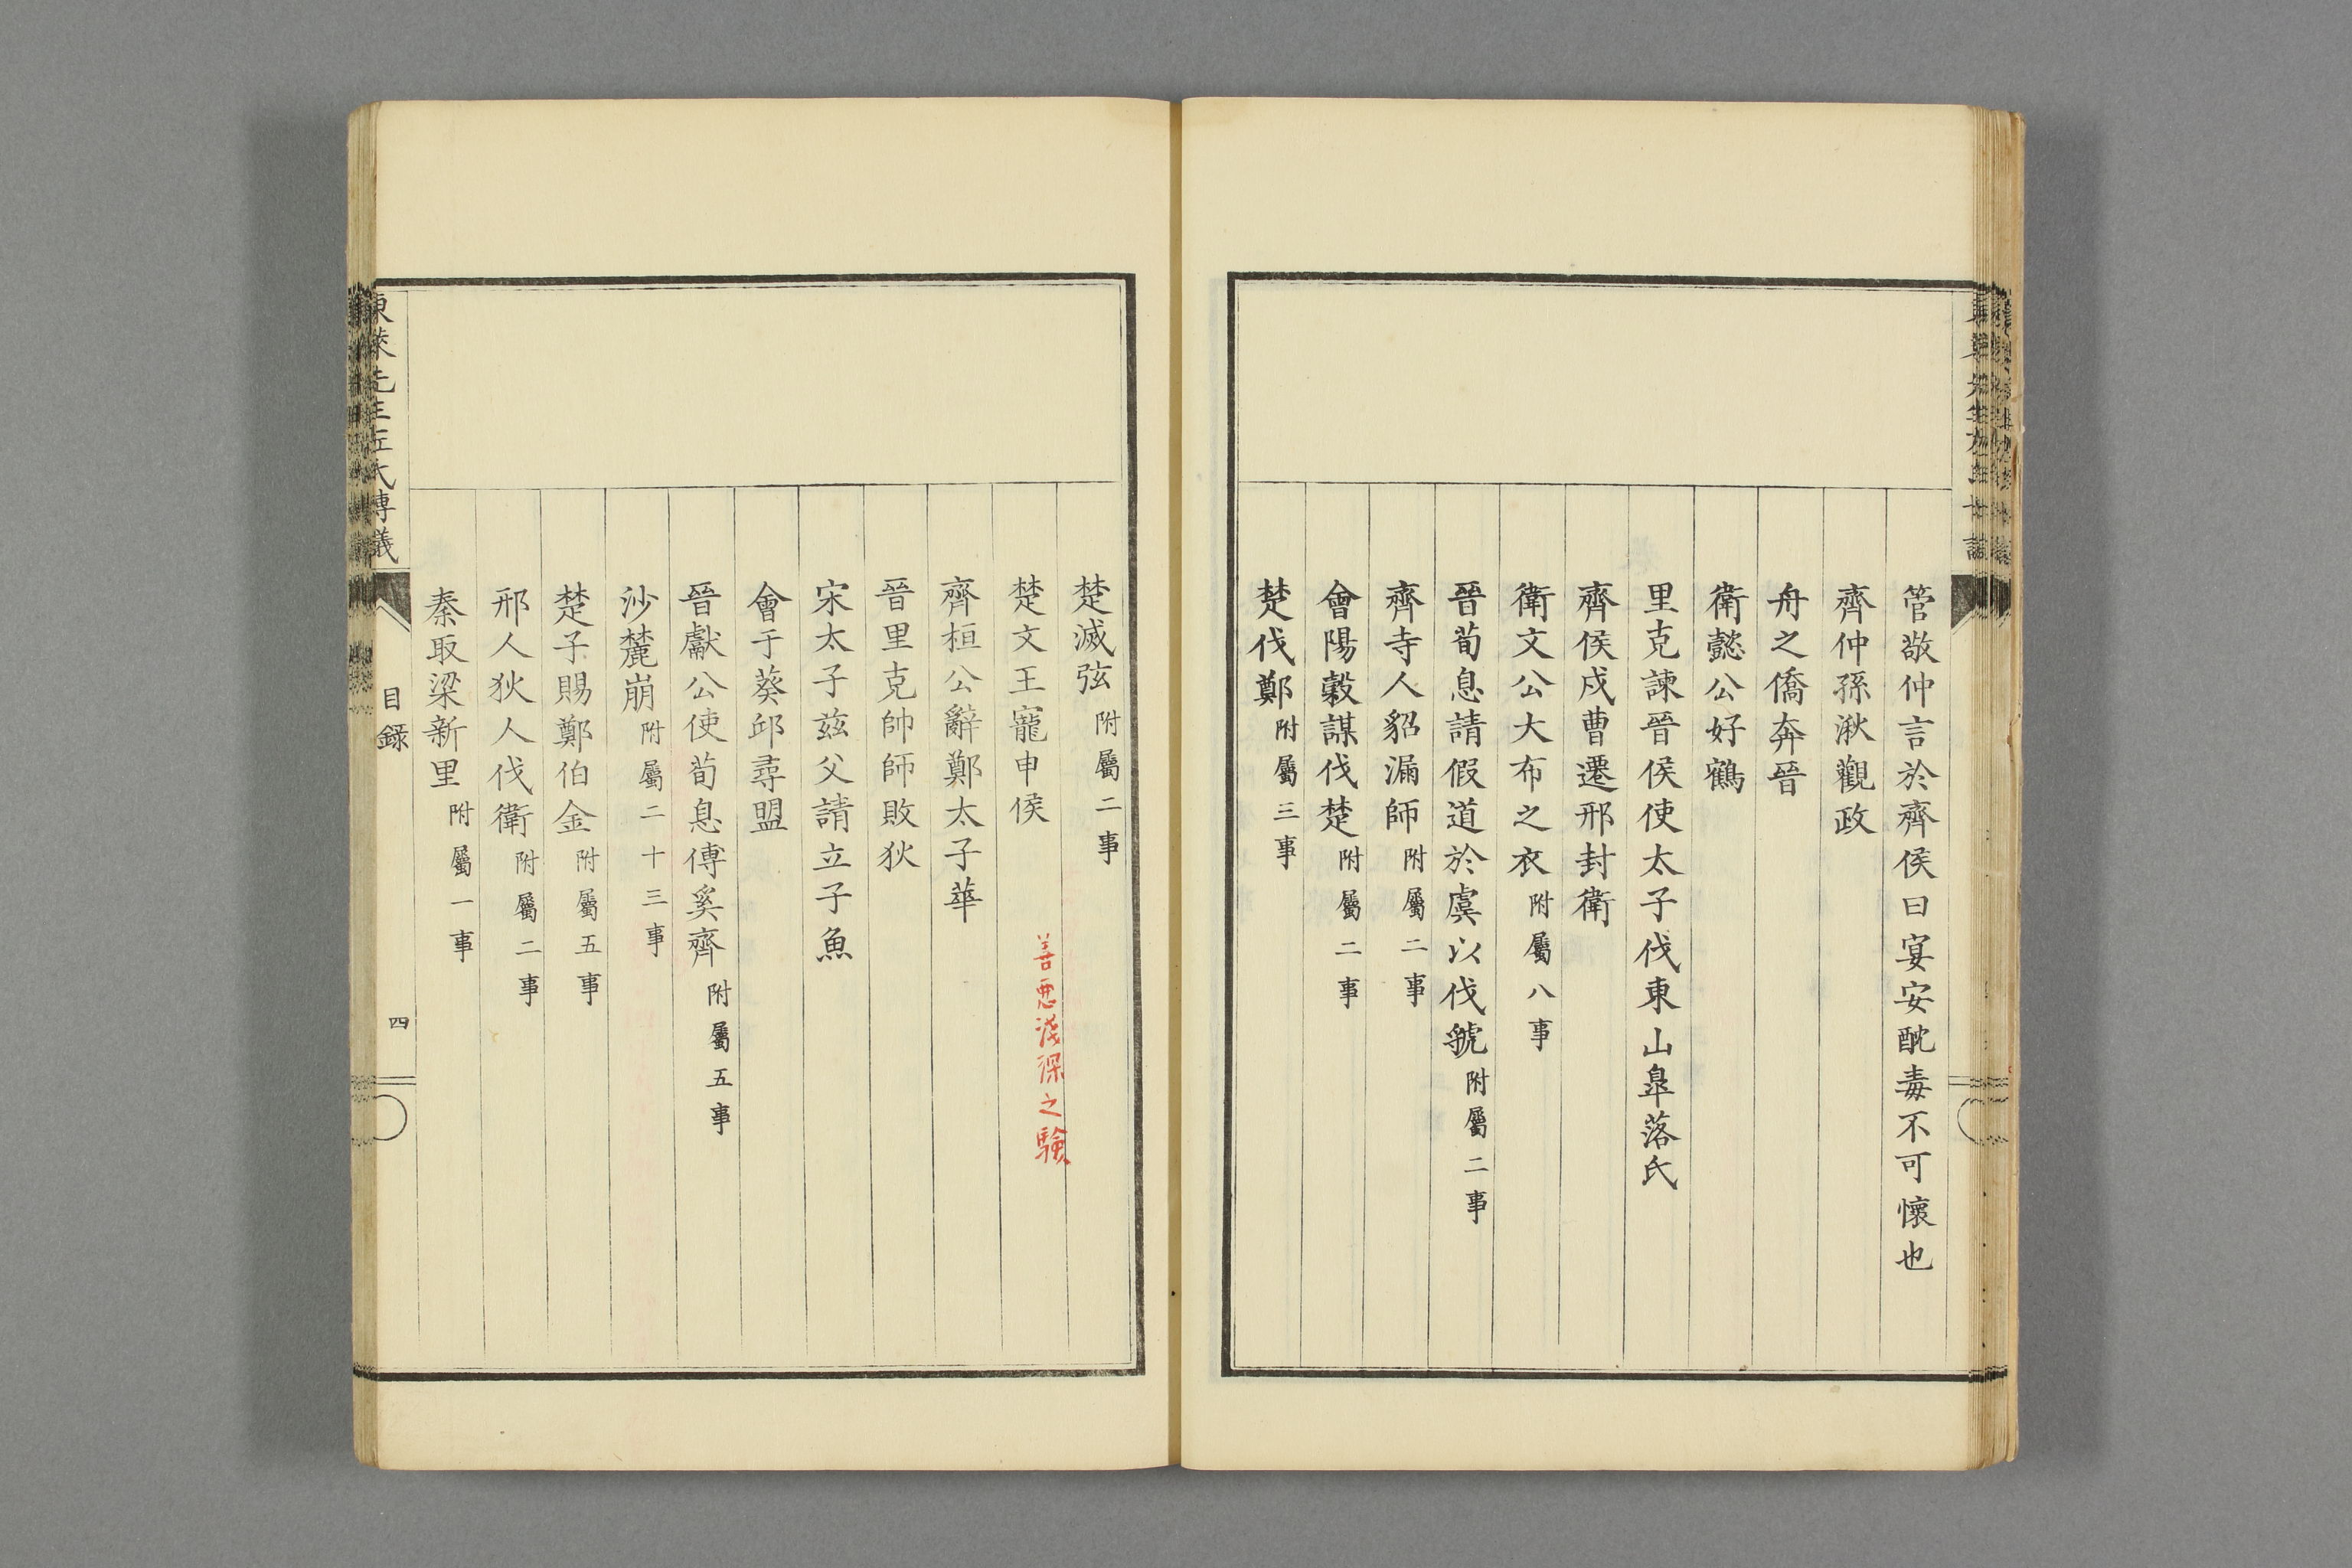 管敬仲言於齊侯曰宴安酖毒不可懷也
齊仲孫湫觀政
舟之僑奔晉
衛懿公好鶴
里克諫晉侯使太子伐東山臯落氏
齊侯戍曹遷邢封衛
衛文公大布之衣附屬八事
晉荀息請假道於虞以伐虢附屬二事
齊寺人貂漏師附屬二事
會陽穀謀伐楚附屬二事
楚伐鄭附屬三事
楚滅弦附屬二事
楚文王寵申侯 善悪淺深之驗
齊桓公辭鄭太子華
晉里克帥師敗狄
宋太子茲父請立子魚
會于葵邱尋盟
晉獻公使荀息傅奚齊附屬五事
沙麓崩附屬二十三事
楚子賜鄭伯金附屬五事
邢人狄人伐衛附屬二事
秦取梁新里附屬一事
東萊先生左氏博議 目錄 四